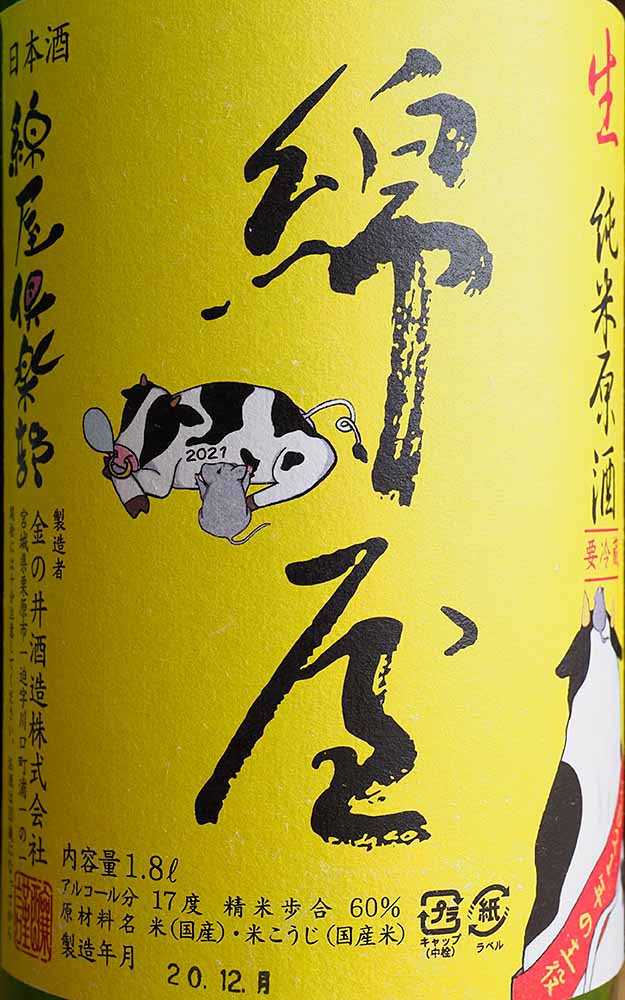 生
純米原酒
要冷蔵
綿屋
2021
日本酒
綿屋倶楽部
製造者
金の井酒造株式会社
宮城県栗原市一迫字川口町浦一の一
内容量 1.8ℓ
アルコール分 17度 精米歩合 60%
原材料名 米(国産)・米こうじ(国産米)
製造年月
20.12.月
プラ
キャップ
(中栓)
紙
ラベル
年の主役